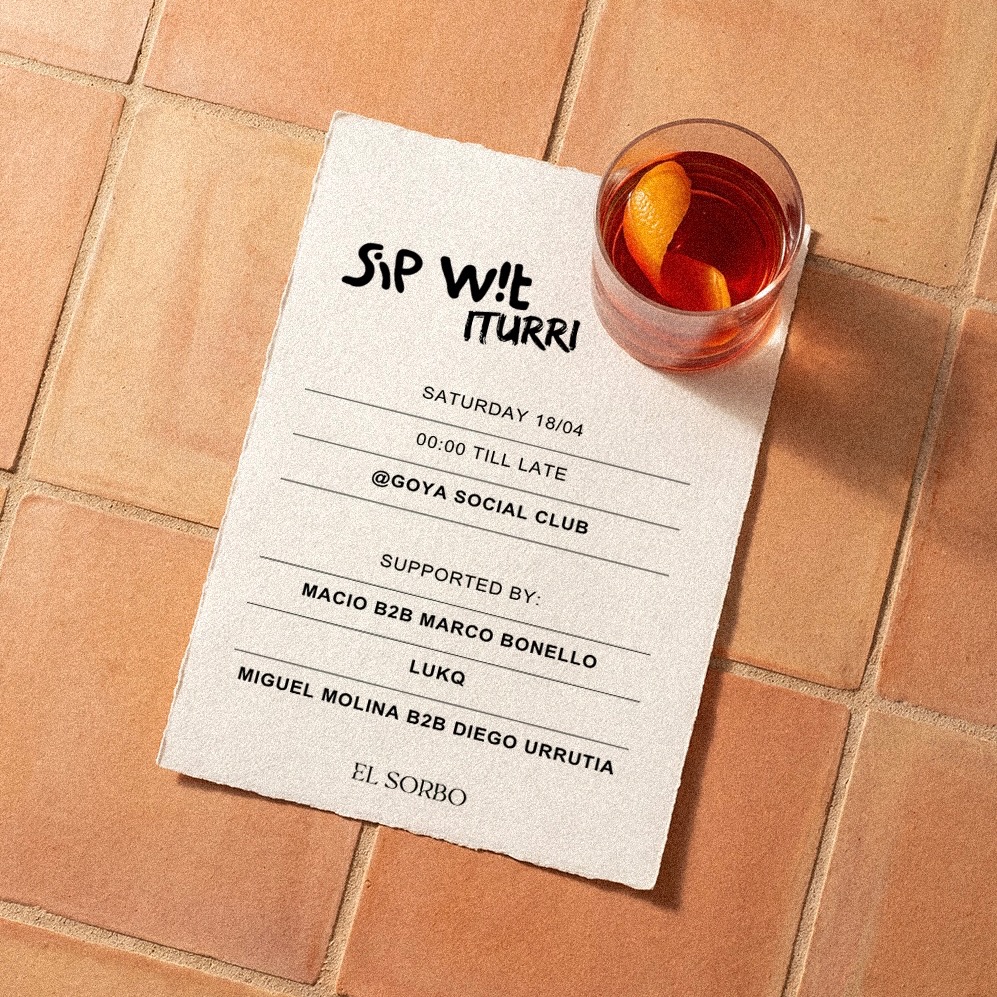 SiP W!t
ITURRI
SATURDAY 18/04
00:00 TILL LATE
@GOYA SOCIAL CLUB
SUPPORTED BY:
MACIO B2B MARCO BONELLO
LUKQ
MIGUEL MOLINA B2B DIEGO URRUTIA
EL SORBO